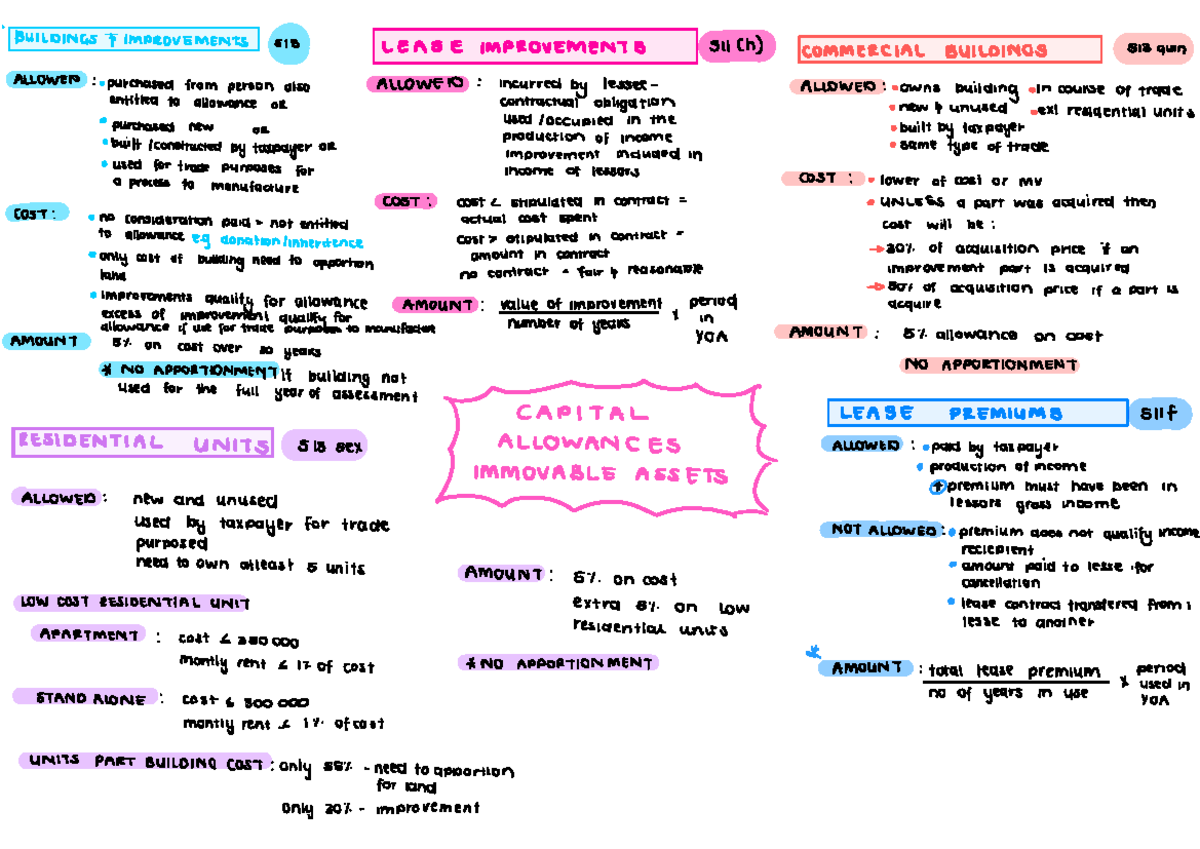 BUILDINGS & IMPROVEMENTS S13
ALLOWED : • purchased from person also
entitled to allowance OR
• purchased new OR
• built / constructed by taxpayer OR
• used for trade purposes for
a process to manufacture
COST : • no consideration paid = not entitled
to allowance eg donation/inheritence
• only cost of building need to apportion
land
• improvements qualify for allowance
excess of improvement qualify for
allowance if use for trade purposes to manufacture
AMOUNT 5% on cost over 20 years
* NO APPORTIONMENT if building not
used for the full year of assessment
LEASE IMPROVEMENTS S11 (h)
ALLOWED : incurred by lessee -
contractual obligation
used / occupied in the
production of income
improvement included in
income of lessors
COST : cost < stipulated in contract =
actual cost spent
cost > stipulated in contract =
amount in contract
no contract = fair & reasonable
AMOUNT : value of improvement x period
number of years in
YOA
COMMERCIAL BUILDINGS S13 quin
ALLOWED : • owns building • in course of trade
• new & unused • exl residential units
• built by taxpayer
• same type of trade
COST : • lower of cost or MV
• UNLESS a part was acquired then
cost will be :
→ 30% of acquisition price if an
improvement part is acquired
→ of acquisition price if a part is
acquire
AMOUNT : 5% allowance on cost
NO APPORTIONMENT
CAPITAL
ALLOWANCES
IMMOVABLE ASSETS
RESIDENTIAL UNITS S13 sex
ALLOWED : new and unused
used by taxpayer for trade
purposed
need to own atleast 5 units
LOW COST RESIDENTIAL UNIT
APARTMENT : cost ≤ 350 000
montly rent ≤ 1% of cost
STAND ALONE : cost ≤ 300 000
montly rent ≤ 1% of cost
UNITS PART BUILDING COST : only 55% - need to apportion
for land
only 30% - improvement
AMOUNT : 5% on cost
extra 5% on low
residential units
* NO APPORTIONMENT
LEASE PREMIUMS S11f
ALLOWED : • paid by taxpayer
• production of income
+ premium must have been in
lessors gross income
NOT ALLOWED : • premium does not qualify income
reciepient
• amount paid to lesse for
cancellation
• lease contract transfered from 1
lesse to another
* AMOUNT : total lease premium x period
no of years in use used in
YOA